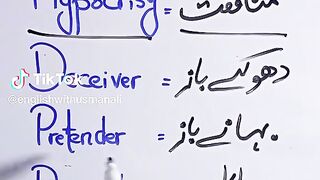 Hypocrisy = منافقت
Deceiver = دھوکے باز
TikTok
@englishwithusmanali
Pretender = بہانے باز